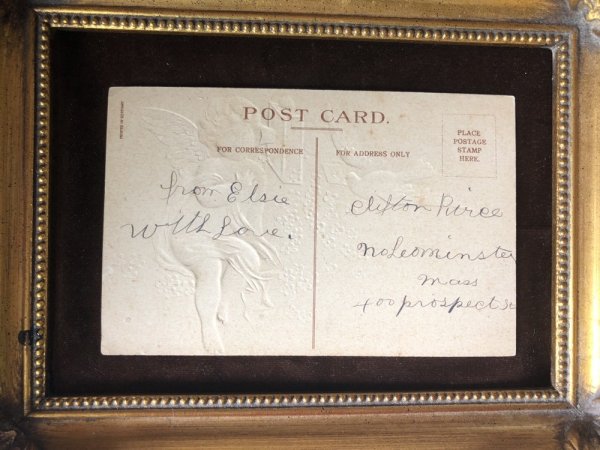 PRINTED IN GERMANY
POST CARD.
FOR CORRESPONDENCE
FOR ADDRESS ONLY
PLACE
POSTAGE
STAMP
HERE.
from Elsie
With Love.
Clifton Peirce
No Leominster
Mass
400 prospect St